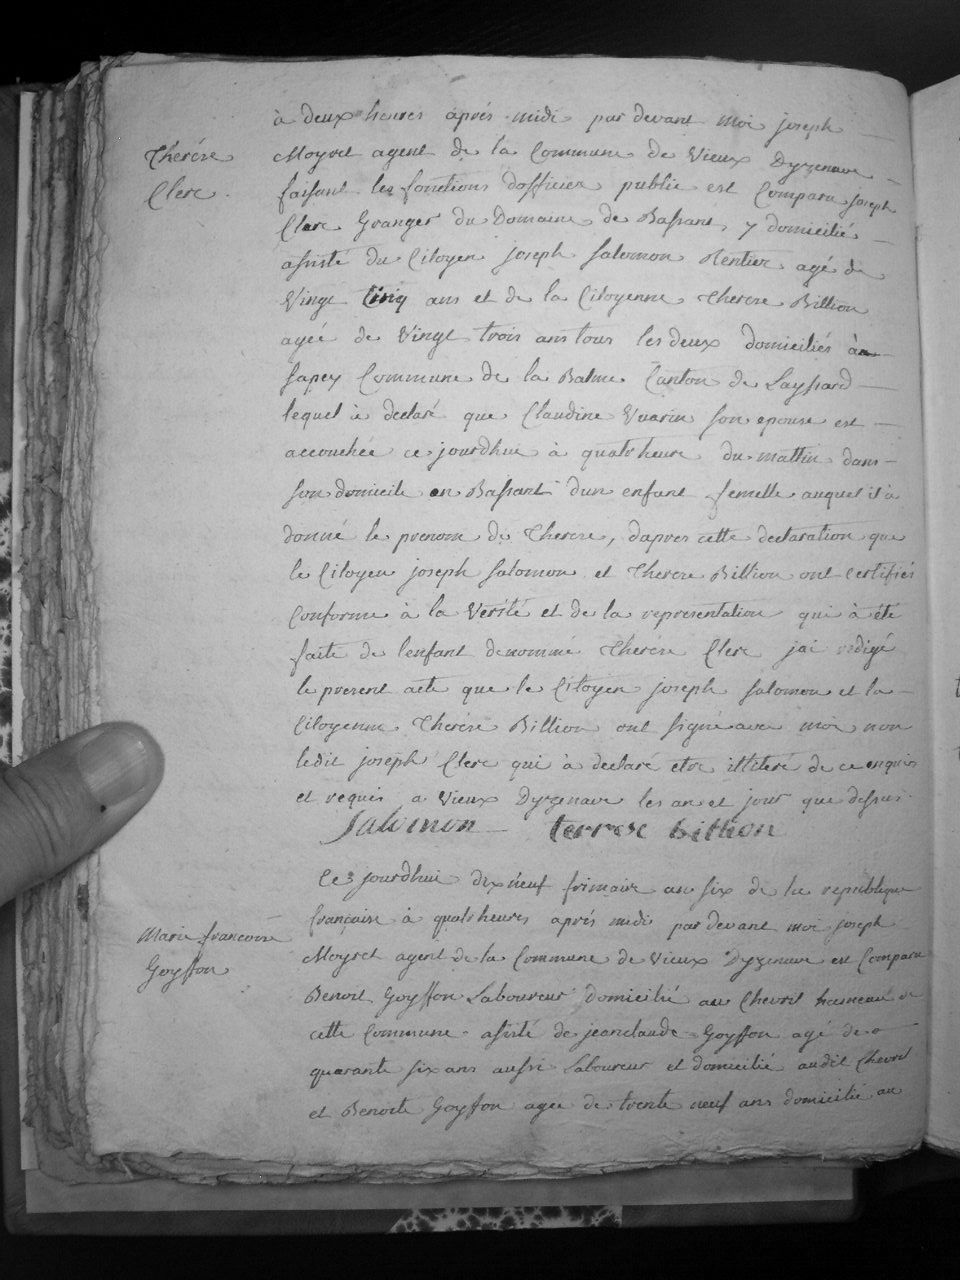 à deux heures aprés midi par devant moi joseph
Therése
Clerc.
Moyret agent de la Commune de Vieux Dyzenave
faisant les fonctions dofficier public est Comparu joseph
Clerc Granger du Domaine de Bassant, y domicilié
asisté du Citoyen joseph Salomon Rentier agé de
Vingt Cinq ans et de la Citoyenne Therese Billion
agée de Vingt trois ans tous les deux domiciliés au
Sapey Commune de la Balme Canton de Leyssard
lequel à declaré que Claudine Vuarin son epouse est
accouchée ce jourdhui à quatr heure du mattin dans
son domicile en Bassant dun enfant femelle auquel il à
donné le prenom de Therese, dapres cette declaration que
le Citoyen joseph Salomon et Therese Billion ont certifiés
Conforme à la Verité et de la representation qui à été
faite de lenfant denommé Therése Clerc jai redigé
le present acte que le Citoyen joseph Salomon et la
Citoyenne Therése Billion ont signé avec moi non
ledit joseph Clerc qui à declaré etre illiteré de ce enquis
et requis a Vieux Dyzenave les an et jour que dessus.
Salomon terrese billion
Ce jourdhui dix neuf frimaire an six de la republique
française à quatr heures aprés midi par devant moi joseph
Marie francoise
Goyffon
Moyret agent de la Commune de Vieux Dyzenave est Comparu
Benoit Goyffon Laboureur domicilié au Chevril hameau de
cette Commune asisté de jeanclaude Goyffon agé de
quarante six ans aussi Laboureur et domicilié audit Chevril
et Benoite Goyffon agée de trente neuf ans domicilié au